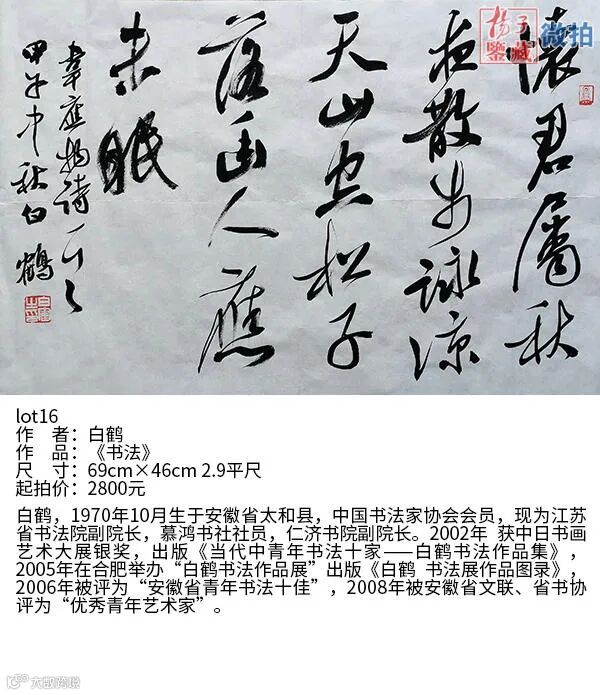 揚子
鑒藏
微拍
懷君屬秋
夜散步詠涼
天山空松子
落幽人應
未眠
韋應物詩一首
甲午中秋白鶴
lot16
作 者：白鹤
作 品：《书法》
尺 寸：69cm×46cm 2.9平尺
起拍价：2800元
白鹤，1970年10月生于安徽省太和县，中国书法家协会会员，现为江苏
省书法院副院长，慕鸿书社社员，仁济书院副院长。2002年 获中日书画
艺术大展银奖，出版《当代中青年书法十家——白鹤书法作品集》，
2005年在合肥举办“白鹤书法作品展”出版《白鹤 书法展作品图录》，
2006年被评为“安徽省青年书法十佳”，2008年被安徽省文联、省书协
评为“优秀青年艺术家”。
大数跨境